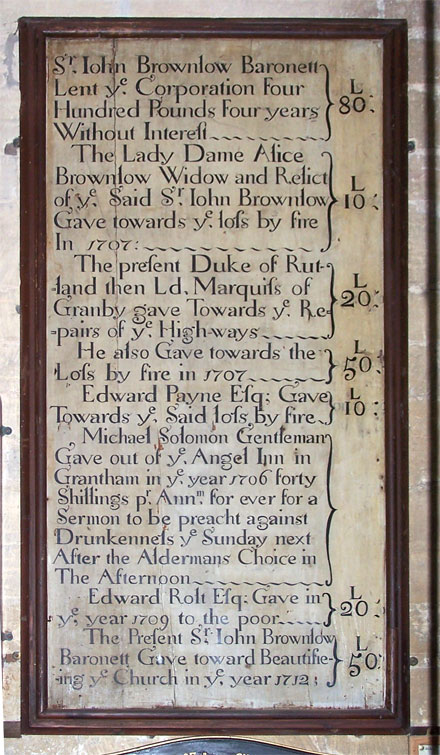 Sr. Iohn Brownlow Baronett
Lent ye. Corporation Four
Hundred Pounds Four years
Without Interest
L
80:
The Lady Dame Alice
Brownlow Widow and Relict
of ye. Said Sr. Iohn Brownlow
Gave towards ye. loſs by fire
In 1707:
L
10:
The preſent Duke of Rut-
-land then Ld. Marquiſs of
Granby gave Towards ye. Re-
-pairs of ye. High-ways
L
20:
He also Gave towards the
Loſs by fire in 1707
L
50:
Edward Payne Eſq; Gave
Towards ye. Said loſs by fire
L
10:
Michael Solomon Gentleman
Gave out of ye. Angel Inn in
Grantham in ye. year 1706 forty
Shillings pr. Annm. for ever for a
Sermon to be preacht against
Drunkenneſs ye. Sunday next
After the Aldermans Choice in
The Afternoon
Edward Rolt Eſq; Gave in
ye. year 1709 to the poor
L
20:
The Preſent Sr. Iohn Brownlow
Baronett Gave toward Beautifie-
-ing ye. Church in ye. year 1712;
L
50: